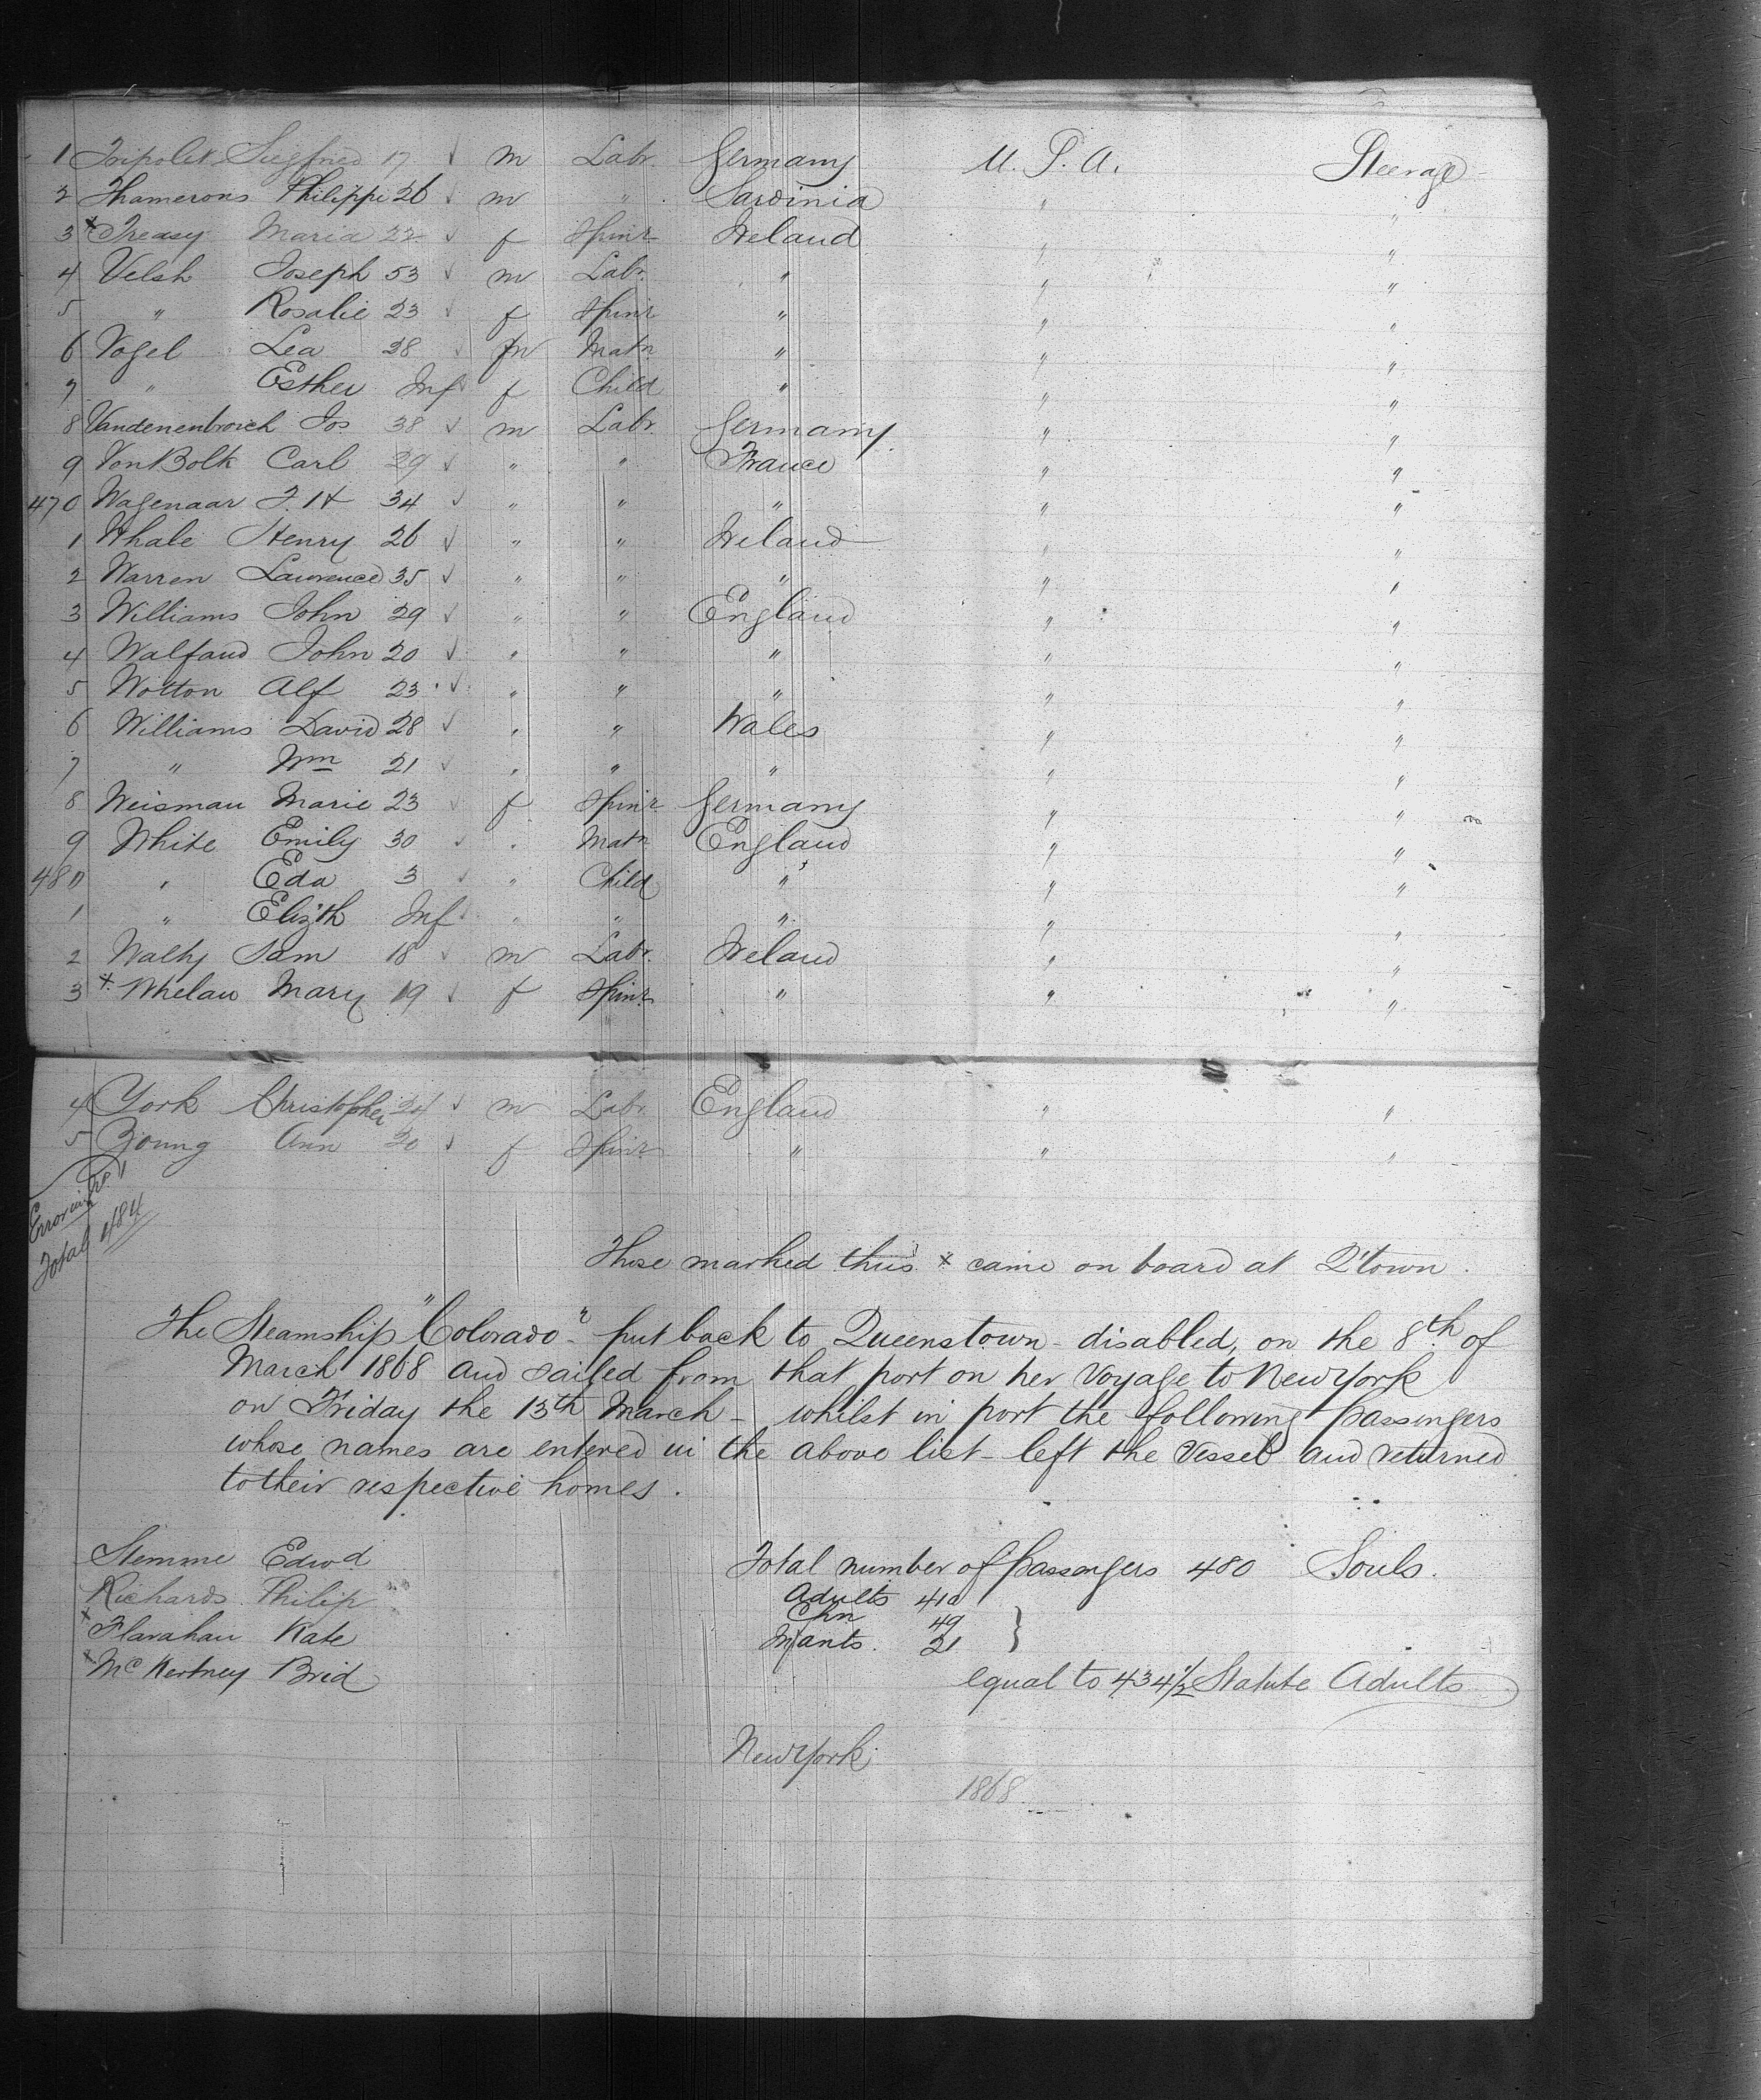 1 Tripolet Siegfried 17 ✓ m Labr. Germany U.S.A. Steerage
2 Thamerons Philippe 26 ✓ m " Sardinia " "
3 x Treasy Maria 22 ✓ f Spinr Ireland " "
4 Velsh Joseph 53 ✓ m Labr. " " "
5 " Rosalie 23 ✓ f Spinr " " "
6 Vogel Lea 28 ✓ f Matn " " "
7 " Esther Inf ✓ f Child " " "
8 Vandenenbroich Jos 38 ✓ m Labr. Germany " "
9 Von Bolk Carl 29 ✓ " " France " "
470 Wagenaar J. H 34 ✓ " " " " "
1 Whale Henry 26 ✓ " " Ireland " "
2 Warren Lawrence 35 ✓ " " " " "
3 Williams John 29 ✓ " " England " "
4 Walfand John 20 ✓ " " " " "
5 Wotton Alf 23 ✓ " " " " "
6 Williams David 28 ✓ " " Wales " "
7 " Wm 21 ✓ " " " " "
8 Weisman Marie 23 ✓ f Spinr Germany " "
9 White Emily 30 ✓ " Matn England " "
480 " Eda 3 ✓ " Child " " "
1 " Eliz'th Inf ✓ " " " " "
2 Walhy Sam 18 ✓ m Labr. Ireland " "
3 x Whelan Mary 19 ✓ f Spinr " " "
4 York Christopher 24 ✓ m Labr England " "
5 Young Ann 20 ✓ f Spinr " " "
Error in No 1
Total 484
Those marked thus x came on board at Q'town.
The Steamship "Colorado" put back to Queenstown - disabled, on the 8th of
March 1868 and sailed from that port on her Voyage to New York
on Friday the 13th March - whilst in port the following passengers
whose names are entered in the above list - left the Vessel and returned
to their respective homes.
Stemme Edwd
Richards Philip
x Flanahan Kate
x McKertney Brid
Total number of passengers 480 Souls.
Adults 410
Chn 49
Infants. 21
equal to 434 1/2 Statute Adults
New York
1868